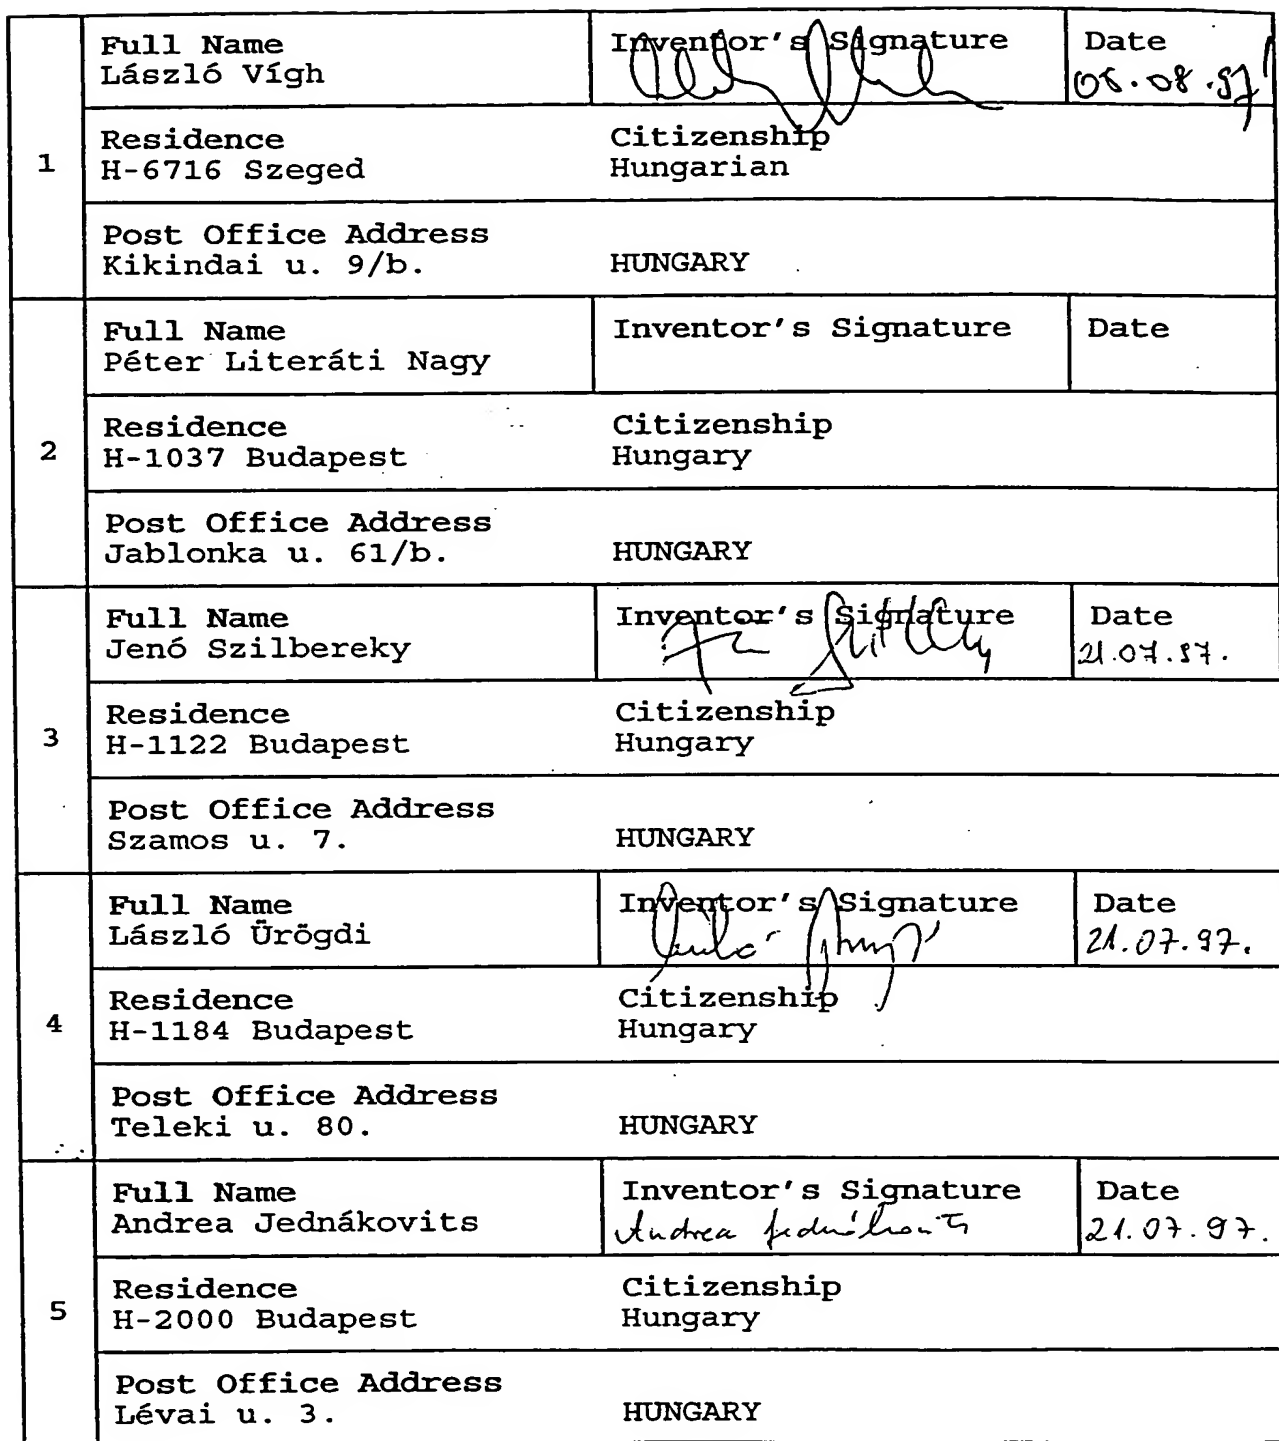 1
Full Name
László Vígh
Inventor's Signature
Date
08.97
Residence
H-6716 Szeged
Citizenship
Hungarian
Post Office Address
Kikindai u. 9/b.
HUNGARY
2
Full Name
Péter Literáti Nagy
Inventor's Signature
Date
Residence
H-1037 Budapest
Citizenship
Hungary
Post Office Address
Jablonka u. 61/b.
HUNGARY
3
Full Name
Jenó Szilbereky
Inventor's Signature
Date
21.07.97.
Residence
H-1122 Budapest
Citizenship
Hungary
Post Office Address
Szamos u. 7.
HUNGARY
4
Full Name
László Ürögdi
Inventor's Signature
Date
21.07.97.
Residence
H-1184 Budapest
Citizenship
Hungary
Post Office Address
Teleki u. 80.
HUNGARY
5
Full Name
Andrea Jednákovits
Inventor's Signature
Andrea Jednákovits
Date
21.07.97.
Residence
H-2000 Budapest
Citizenship
Hungary
Post Office Address
Lévai u. 3.
HUNGARY